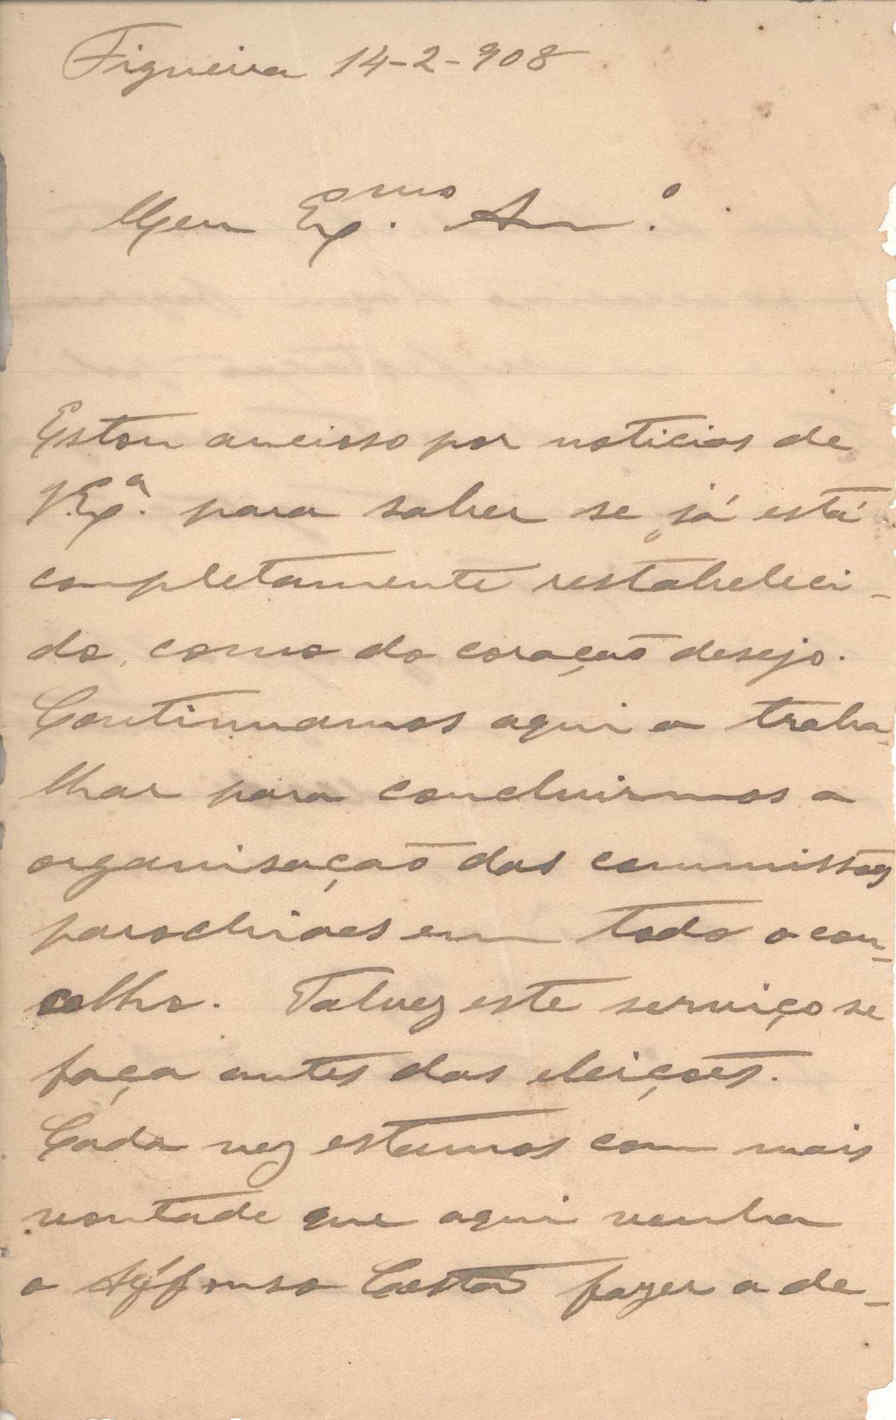 Figueira 14-2-908
Meu Ex.mo Am.o
Estou ancioso por noticias de
V. Ex.a para saber se já está
completamente restabeleci-
do, como do coração desejo.
Continuamos aqui a traba-
lhar para concluirmos a
organisação das commissões
parochiaes em todo o con-
celho. Talvez este serviço se
faça antes das eleições.
Cada vez estamos com mais
vontade que aqui venha
o Affonso Costa fazer a de-